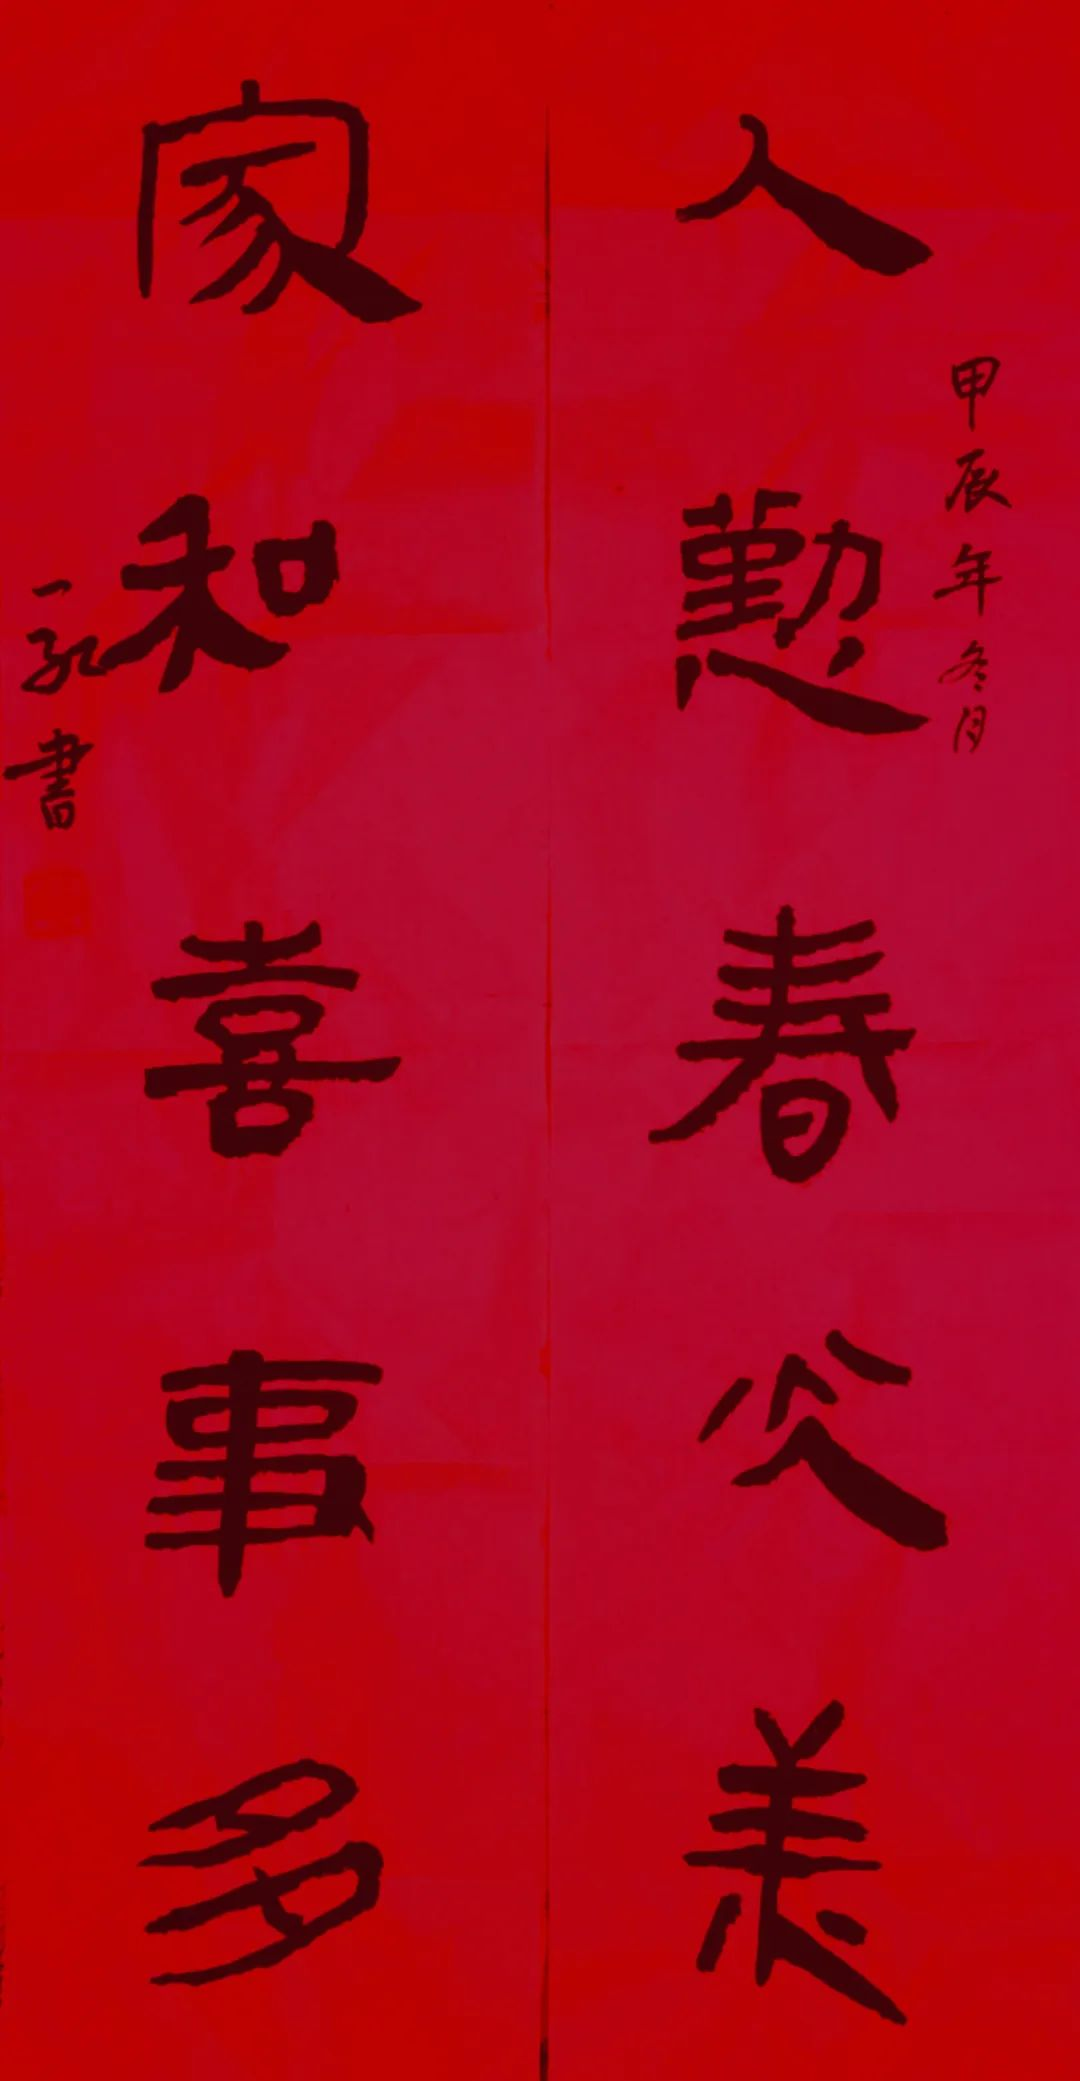 人懃春光美
甲辰年冬月
家和喜事多
一 書